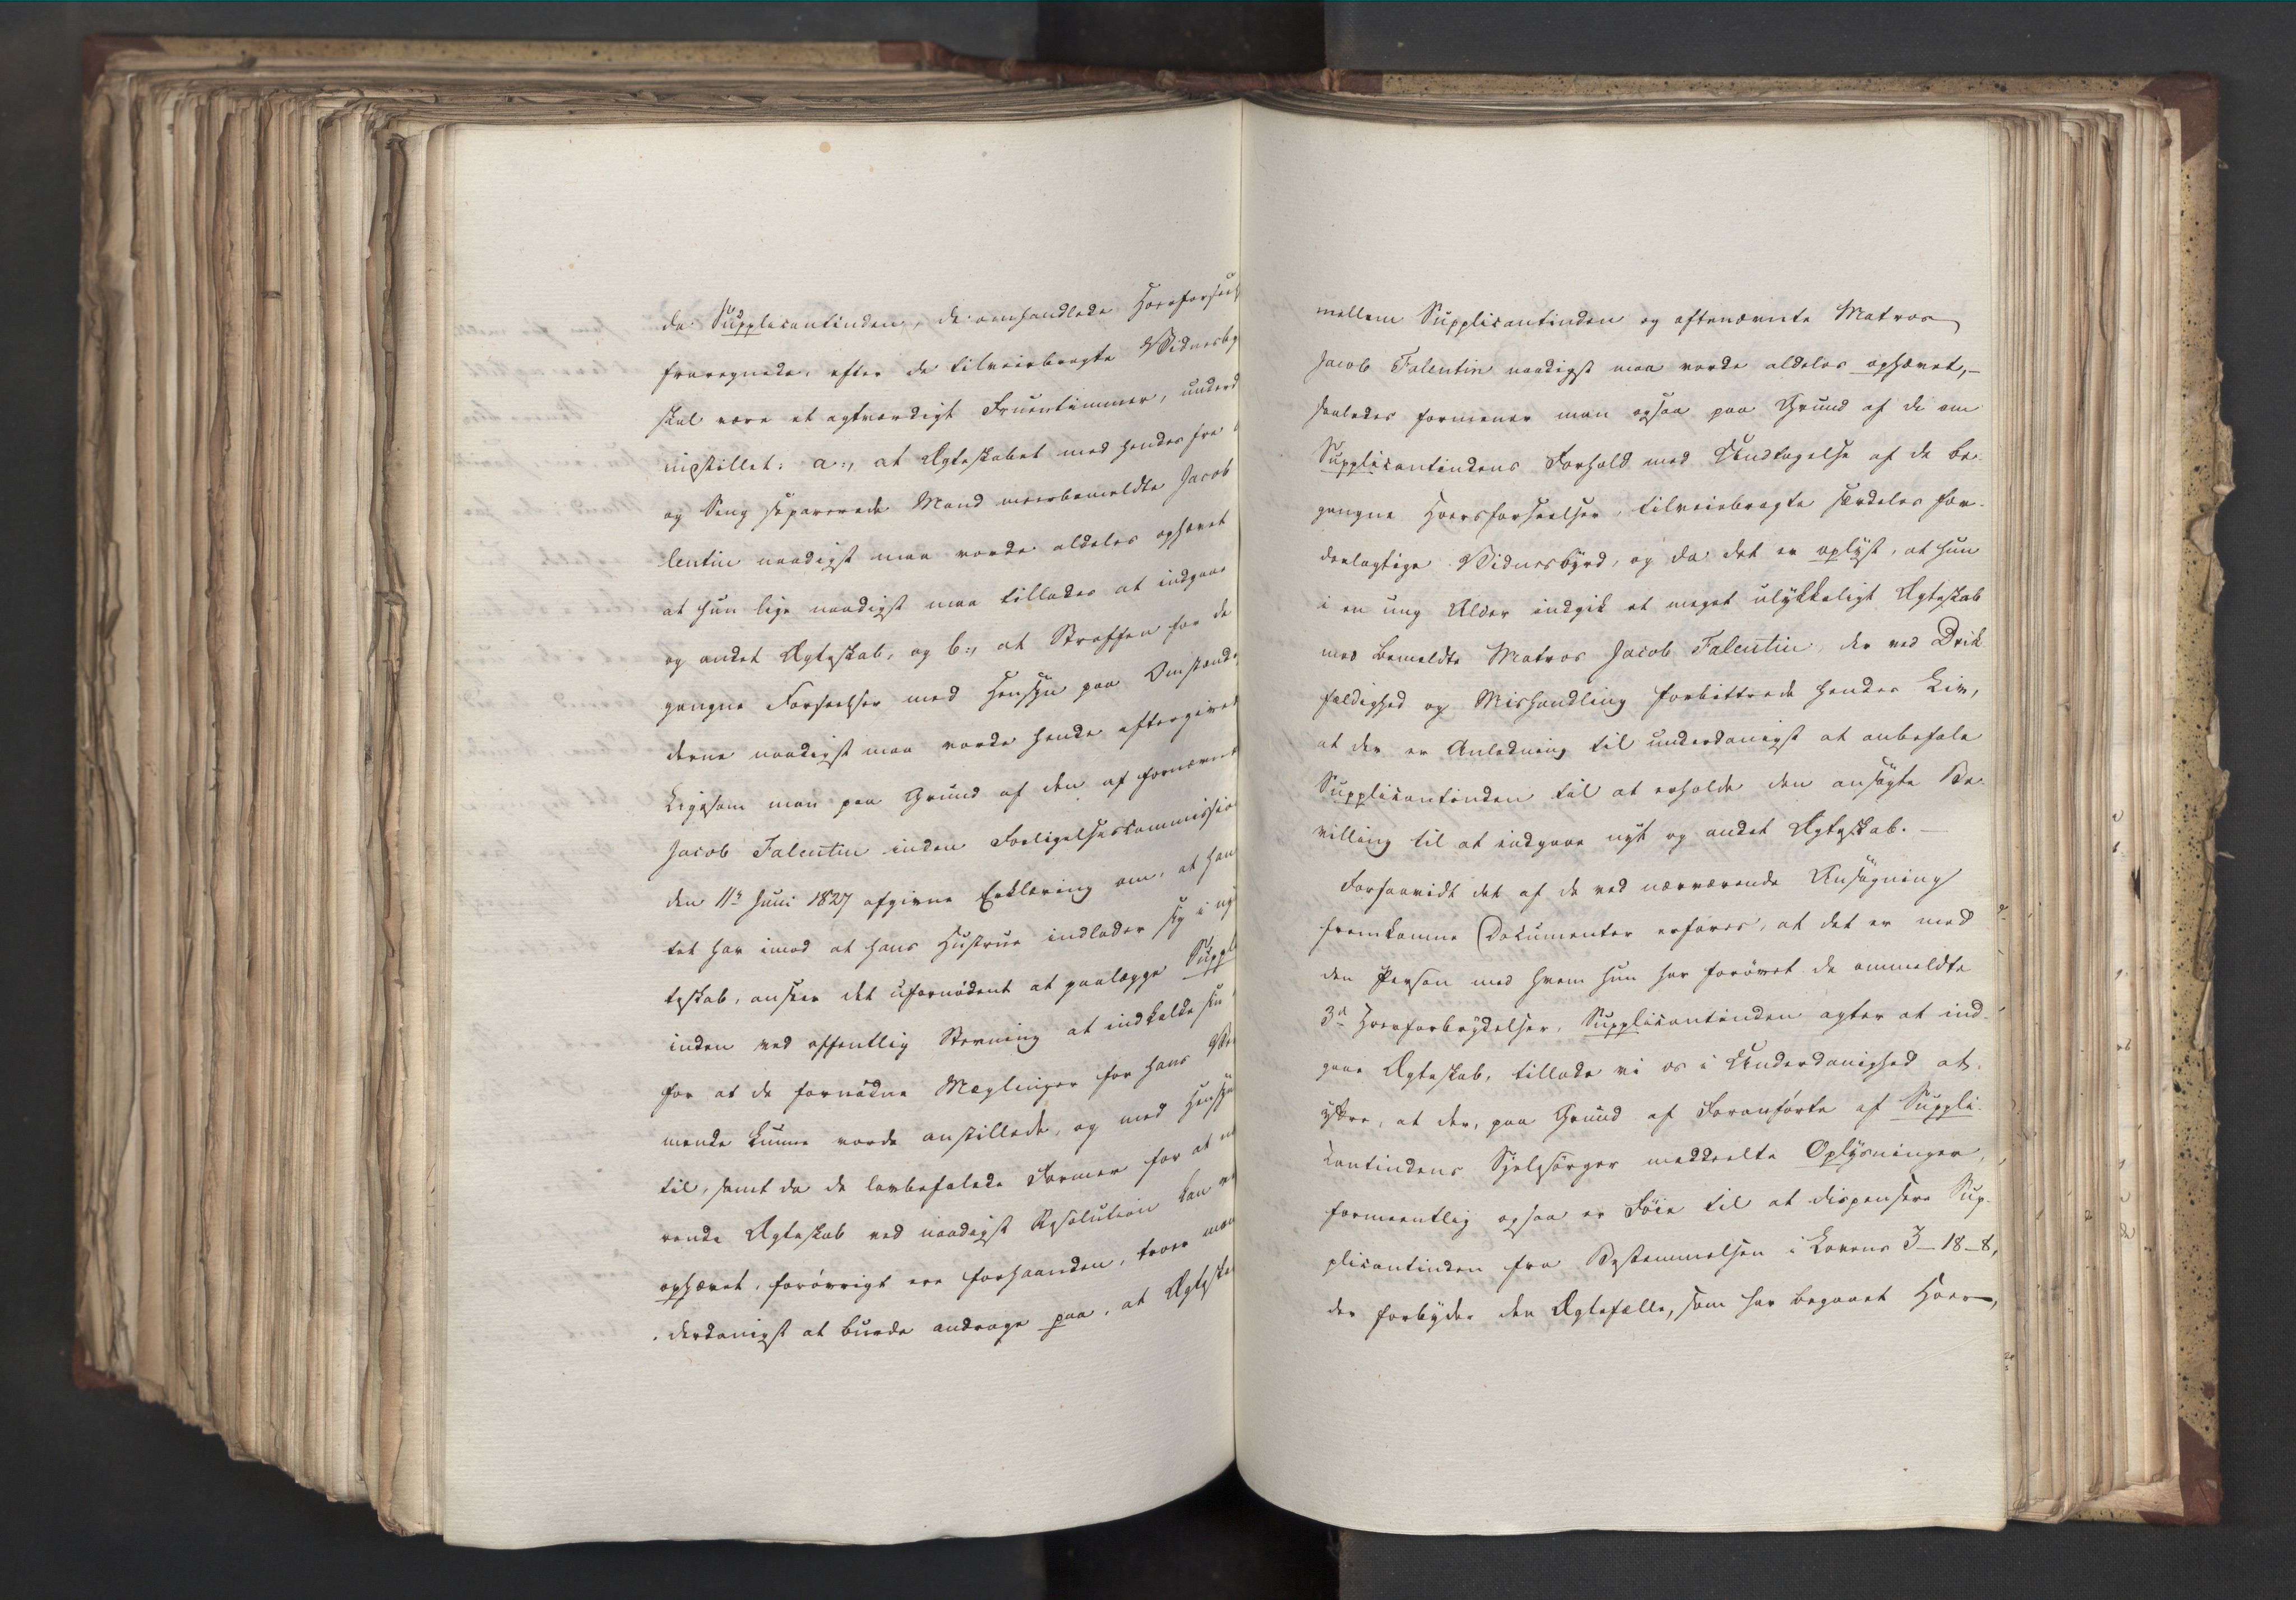 da Supplicantinden, de omhandlede Hoerforseel
fraregnede, efter de tilveiebragte Vidnesby
skal være et agtværdigt Fruentimmer, underd
indstillet: a:, at Ægteskabet med hendes fra
og Seng separerede Mand meerbemeldte Jacob
lentin naadigst maa vorde aldeles ophævet
at hun lige naadigst maa tillades at indgaae
og andet Ægteskab, og b:, at Straffen for de
gangne Forseelser med Hensyn paa Omstænd
derne naadigst maa vorde hende eftergivet
Ligesom man paa Grund af den af fornævnt
Jacob Falentin inden Forligelseskommissio
den 11te Juni 1827 afgivne Erklæring om, at han
tet har imod at hans Hustrue indlader sig i ny
teskab, anseer det ufornødent at paalægge Suppl
inden ved offentlig Stevning at indkalde sin
for at de fornødne Mæglinger for hans Ve
mende kunne vorde anstillede, og med Hensyn
til, samt da de lovbefalede Former for at
rende Ægteskab ved naadigst Resolution kan
ophævet, forøvrigt ere forhaanden, troer man
derdanigst at burde andrage paa, at Ægteska
mellem Supplicantinden og oftenævnte Matros
Jacob Falentin naadigst maa vorde aldeles ophævet,-
saaledes formener man ogsaa paa Grund af de om
Supplicantindens Forhold med Undtagelse af de be-
gangne Hoersforseelser, tilveiebragte særdeles for-
deelagtige Vidnesbyrd, og da det er oplyst, at hun
i en ung Alder indgik et meget ulykkeligt Ægteskab
med bemeldte Matros Jacob Falentin, der ved Drik
fældighed og Mishandling forbittrede hendes Liv,
at der er Anledning til underdanigst at anbefale
Supplicantinden til at erholde den ansøgte Be-
villing til at indgaae nyt og andet Ægteskab. —
Forsaavidt det af de ved nærværende Ansøgning
fremkomne Dokumenter erfares, at det er med
den Person med hvem hun har forøvet de ommeldte
3de Hoersforbrydelser, Supplicantinden agter at ind-
gaae Ægteskab, tillade vi os i Underdanighed at
yttre, at der, paa Grund af Foranførte af Suppli-
kantindens Sjelesørger meddeelte Oplysninger,
formeentlig ogsaa er Føie til at dispensere Sup-
plicantinden fra Bestemmelsen i Lovens 3–18–8,
der forbyder den Ægtefælle, som har begaaet Hoer,